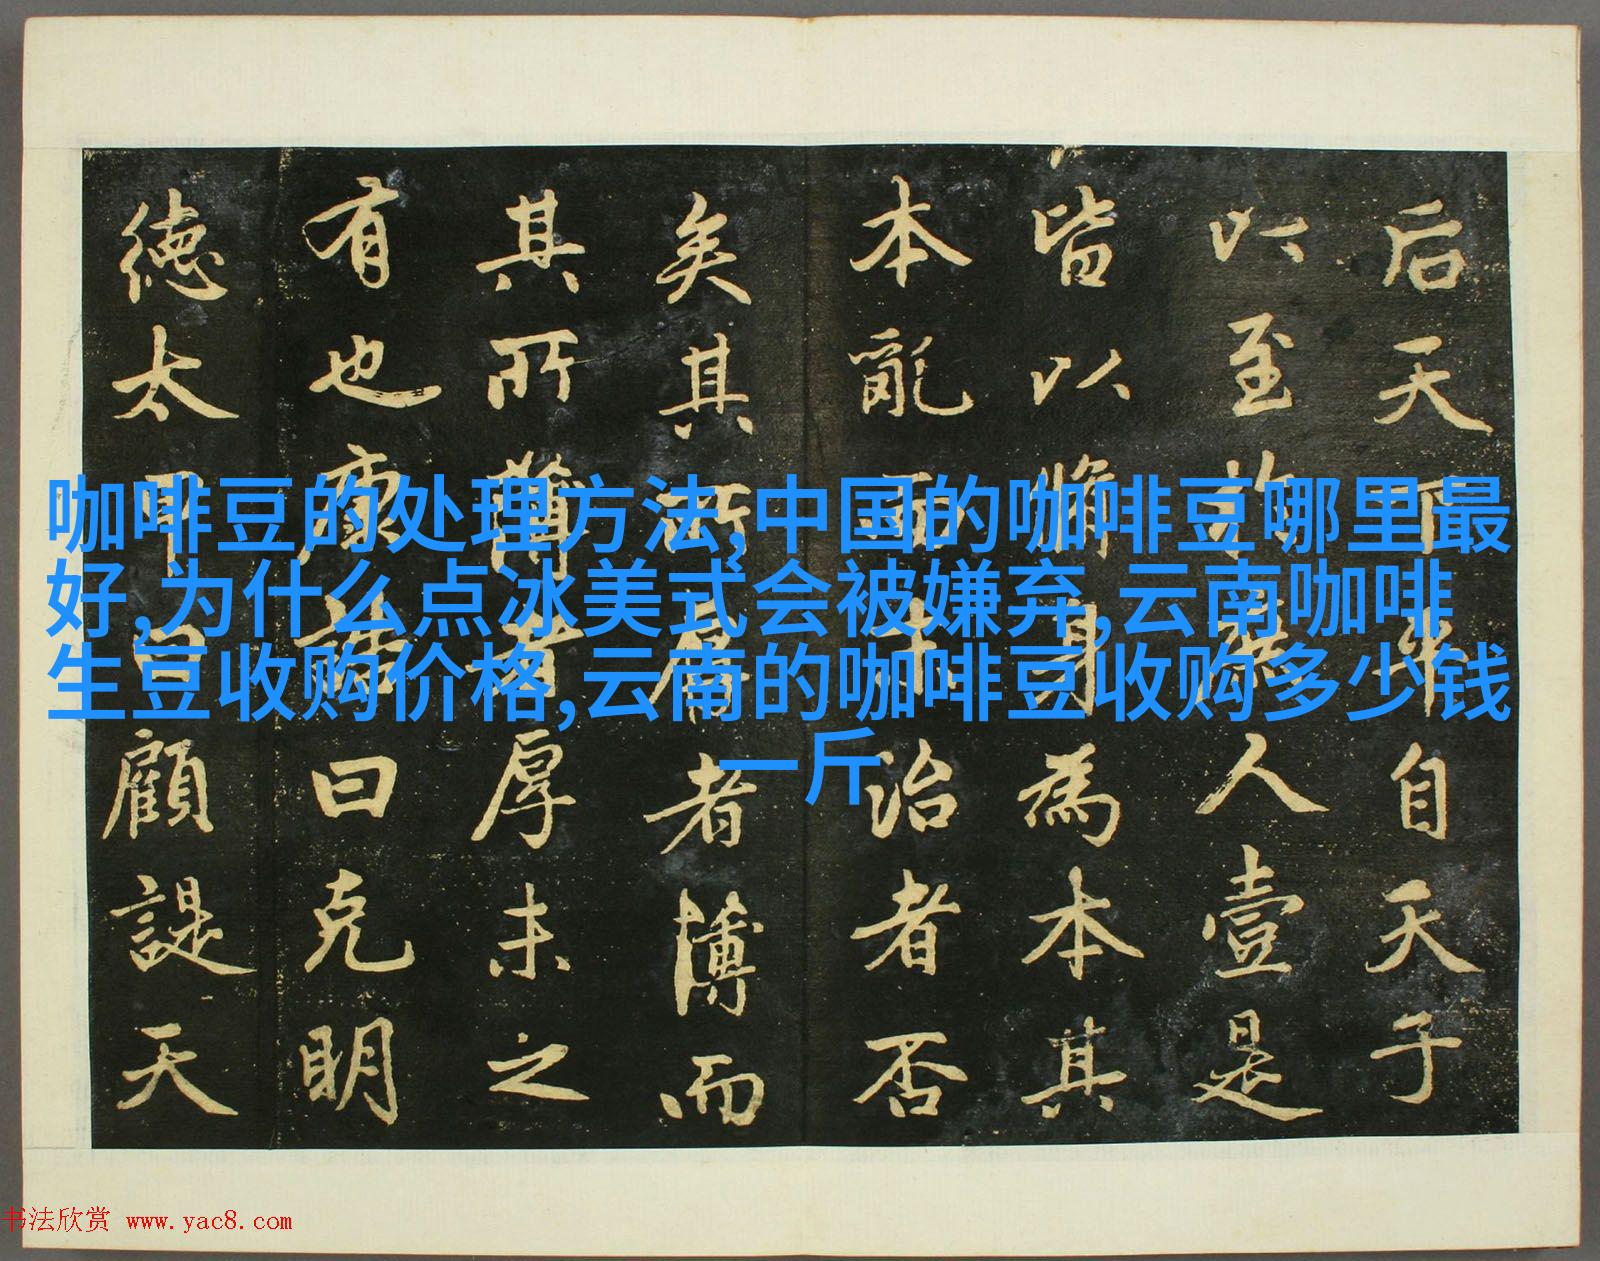 咖啡豆的处理方法,中国的咖啡豆哪里最
好,为什么点冰美式会被嫌弃,云南咖啡
生豆收购价格,云南的咖啡豆收购多少钱
一斤
后天下平自天子
以至於庶人壹是
皆以脩身為本其
本亂而末治者否
矣其所厚者薄而
其所薄者厚未之
有也康誥曰克明
德太甲曰顧諟天
书法欣赏 www.yac8.com